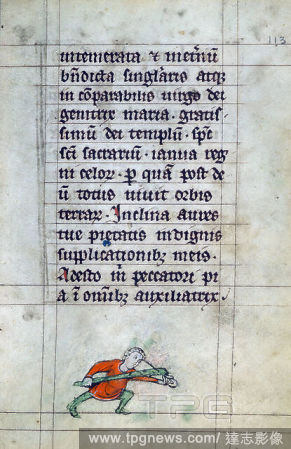 113
intemerata ⁊ in et̾nū
bn̄dicta singłaris atq̨
in cōparabilis uirgo dei
genitrix maria. gratis-
simū dei templū. sp̄c
sc̄i sacrariū. ianua reg
ni celoꝝ. p̱ quā post de
ū totus uiuit orbis
terraꝝ. Inclina aures
tue pietatis indignis
supplicationibꝫ meis.
Adesto m̄ peccatori pi
a ī om̄ibꝫ auxiliatrix.
TPG
www.tpgnews.com/ 達志影像